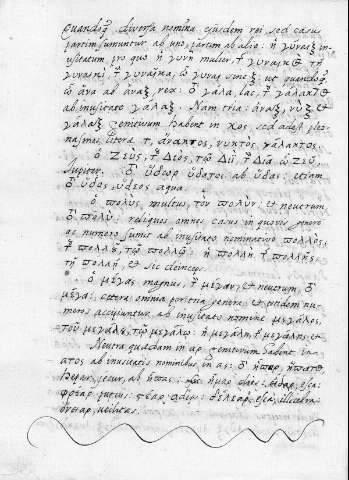 Quandoq₃ diversa nomina eiusdem rei sed casus
partim sumuntur ab uno, partim ab alio: ἡ γύναιξ in-
usitatum, pro quo ἡ γυνὴ mulier, τ͂ γυναικὸς τῇ
γυναικὶ, τ̀ γυναῖκα, ὦ γύναι sine ξ, ut quandoq₃
ὦ ἄνα ab ἄναξ, rex: ὁ γάλα, lac, τ͂ γάλακτος
ab inusitato γάλαξ. Nam tria: ἄναξ, νὺξ et
γάλαξ genitivum habent in κος, sed adest pleo-
nasmus, litera τ, ἄνακτος, νυκτὸς, γάλακτος.
ὁ Ζεὺς, τ͂ Διὸς, τῷ Διῒ, τ̀ Δία ὦ Ζεῦ,
Jupiter. ὁ ὕδωρ ὕδατος ab ὕδας: etiam
ὁ ὕδος, ὕδεος aqua.
ὁ πολὺς multus, τὸν πολὺν: et neutrum,
ὁ πολὺ: reliquos omnes casus in quovis genere
ac numero sumit ab inusitato nominativo πολλὸς,
τ͂ πολλοῦ, τῷ πολλῷ: ἡ πολλὴ τ͂ πολλῆς
τῇ πολλῇ, et sic deinceps.
ὁ μέγας magnus, τ̀ μέγαν, et neutrum, ὁ
μέγα: cetera omnia per tria genera, et totidem nu-
meros accipiuntur ab inusitato nomine μεγάλος,
τοῦ μεγάλου, τῷ μεγάλῳ: ἡ μεγάλη τ͂ μεγάλης, et
Neutra quaedam in αρ genitivum habent in
ατος ab inusitatis nominibus in ας: ὁ ἧπαρ, ἥπατος
hepar, jecur, ab ἧπας: ἦμαρ dies: εἶδαρ, esca:
φρέαρ, puteus: στέαρ, : δέλεαρ, esca, illecebra
ὄνειαρ, utilitas.